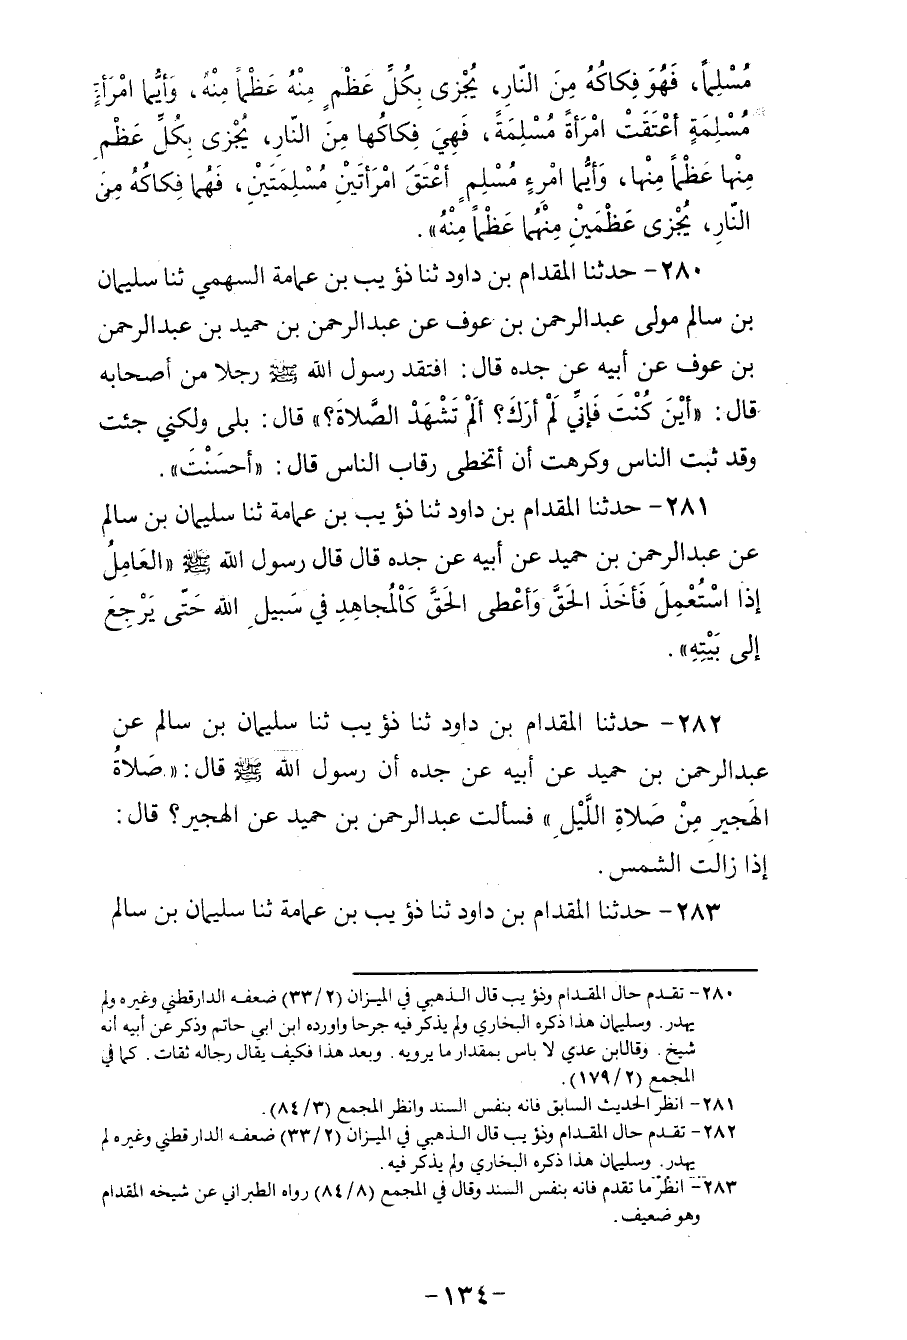 مُسْلِماً، فَهُوَ فِكاكُهُ مِنَ النّارِ، يُجْزى بِكُلِّ عَظْمٍ مِنْهُ عَظْماً مِنْهُ، وَأَيُّما امْرَأَةٍ
مُسْلِمَةٍ أَعْتَقَتْ امْرَأَةً مُسْلِمَةً، فَهِيَ فِكاكُها مِنَ النّارِ، يُجْزى بِكُلِّ عَظْمٍ
مِنْها عَظْماً مِنْها، وَأَيُّما امْرِءٍ مُسْلِمٍ أَعْتَقَ امْرَأَتَيْنِ مُسْلِمَتَيْنِ، فَهُما فِكاكُهُ مِنَ
النّارِ، يُجْزى عَظْمَيْنِ مِنْهُما عَظْماً مِنْهُ».
٢٨٠- حدثنا المقدام بن داود ثنا ذؤيب بن عمامة السهمي ثنا سليمان
بن سالم مولى عبدالرحمن بن عوف عن عبدالرحمن بن حميد بن عبدالرحمن
بن عوف عن أبيه عن جده قال: افتقد رسول الله ﷺ رجلا من أصحابه
قال: «أَيْنَ كُنْتَ فَإِنِّي لَمْ أَرَكَ؟ أَلَمْ تَشْهَدْ الصَّلاةَ؟» قال: بلى ولكني جئت
وقد ثبت الناس وكرهت أن أتخطى رقاب الناس قال: «أَحسَنْتَ».
٢٨١- حدثنا المقدام بن داود ثنا ذؤيب بن عمامة ثنا سليمان بن سالم
عن عبدالرحمن بن حميد عن أبيه عن جده قال قال رسول الله ﷺ «العَامِلُ
إذا اسْتُعْمِلَ فَأَخَذَ الحَقَّ وَأَعْطى الحَقَّ كَالْمُجاهِدِ في سَبيلِ الله حَتّى يَرْجِعَ
إلى بَيْتِهِ».
٢٨٢- حدثنا المقدام بن داود ثنا ذؤيب ثنا سليمان بن سالم عن
عبدالرحمن بن حميد عن أبيه عن جده أن رسول الله ﷺ قال: «صَلاةُ
الهَجيرِ مِنْ صَلاةِ اللَّيْلِ» فسألت عبدالرحمن بن حميد عن الهجير؟ قال:
إذا زالت الشمس.
٢٨٣- حدثنا المقدام بن داود ثنا ذؤيب بن عمامة ثنا سليمان بن سالم
٢٨٠- تقدم حال المقدام وذؤيب قال الذهبي في الميزان (٣٣/٢) ضعفه الدارقطني وغيره ولم
يهدر. وسليمان هذا ذكره البخاري ولم يذكر فيه جرحا واورده ابن ابي حاتم وذكر عن أبيه أنه
شيخ. وقالابن عدي لا باس بمقدار ما يرويه. وبعد هذا فكيف يقال رجاله ثقات. كما في
المجمع (١٧٩/٢).
٢٨١- انظر الحديث السابق فانه بنفس السند وانظر المجمع (٨٤/٣).
٢٨٢- تقدم حال المقدام وذؤيب قال الذهبي في الميزان (٣٣/٢) ضعفه الدارقطني وغيره لم
يهدر. وسليمان هذا ذكره البخاري ولم يذكر فيه.
٢٨٣- انظر ما تقدم فانه بنفس السند وقال في المجمع (٨٤/٨) رواه الطبراني عن شيخه المقدام
وهو ضعيف.
-١٣٤-